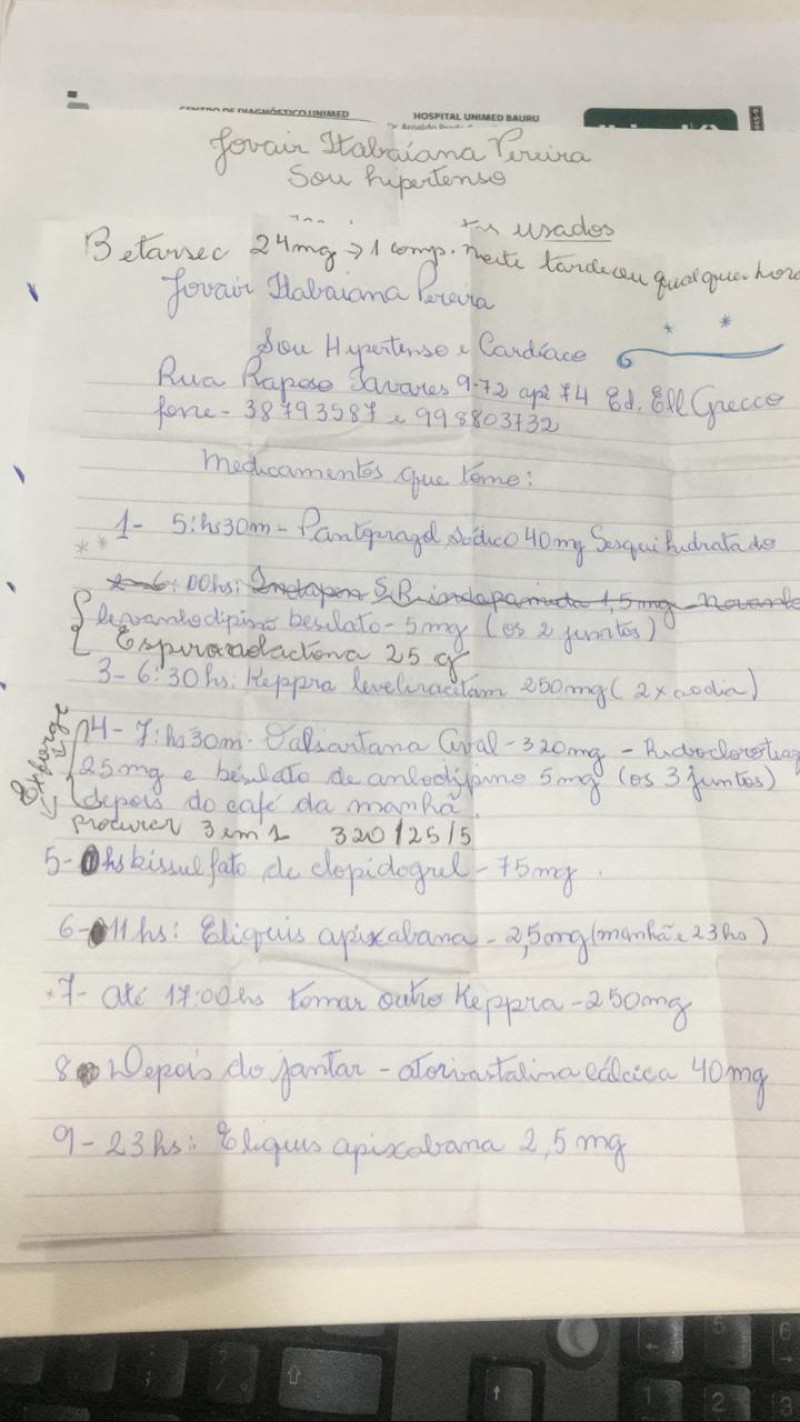 CENTRO DE DIAGNÓSTICO UNIMED
HOSPITAL UNIMED BAURU
Jovair Itabaiana Pereira
Sou hipertenso
usados
Betarsec 24mg → 1 comp. tarde ou qualquer hora
Jovair Itabaiana Pereira
Sou Hipertenso e Cardíaco
Rua Raposo Tavares 9-72 apt 74 Ed. Ell Grecco
fone - 38793587 e 998803732
Medicamentos que tomo:
1- 5:hs30m - Pantoprazol sódico 40mg Sesquihidratado
6:00hs: Indapen SR indapamida 1,5mg
levanlodipino besilato - 5mg (os 2 juntos)
Espironolactona 25 g
3- 6:30hs: Keppra levetiracetam 250mg (2x ao dia)
Exforge
4- 7:hs30m - Valsartana 320mg - hidroclorotiaz
25mg e besilato de anlodipino 5mg (os 3 juntos)
depois do café da manhã.
procurar 3 em 1 320/25/5
5- hs bissulfato de clopidogrel - 75mg.
6- 11hs: Eliquis apixabana - 2,5mg (manhã e 23hs)
7- até 17:00hs tomar outro Keppra - 250mg
8 Depois do jantar - atorvastatina cálcica 40mg
9- 23hs: Eliquis apixabana 2,5mg